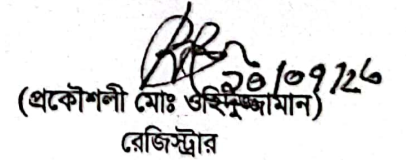 ২০/০৭/২৬
(প্রকৌশলী মোঃ ওহিদুজ্জামান)
রেজিস্ট্রার